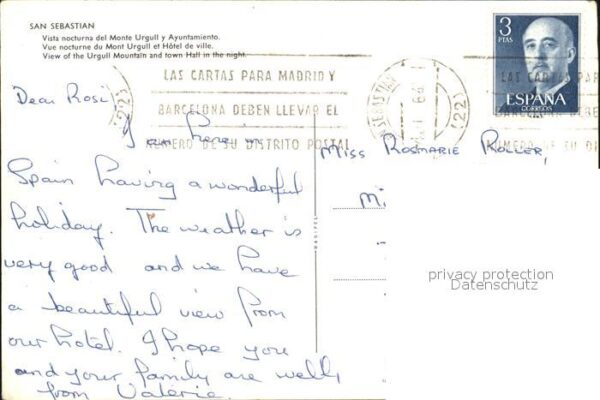 SAN SEBASTIAN
Vista nocturna del Monte Urgull y Ayuntamiento.
Vue nocturne du Mont Urgull et Hôtel de ville.
View of the Urgull Mountain and town Hall in the night.
3
PTAS
ESPAÑA
CORREOS
LAS CARTAS PARA MADRID Y
BARCELONA DEBEN LLEVAR EL
NUMERO DE SU DISTRITO POSTAL
SEBASTIAN
(22)
LAS CARTAS PARA
BARCELONA DEBE
NUMERO DE SU DI
Dear Rosi
I am here in
Spain having a wonderful
holiday. The weather is
very good and we have
a beautiful view from
our hotel. I hope you
and your family are well,
from Valerie.
Miss Rosmarie Roller,
Mi
privacy protection
Datenschutz